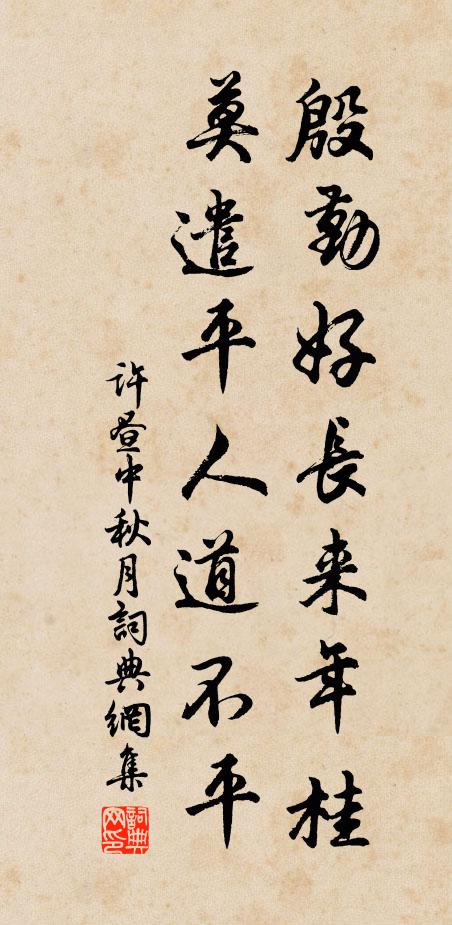 殷勤好長来年桂
莫遣平人道不平
許昼中秋月詞典網集
詞典网印